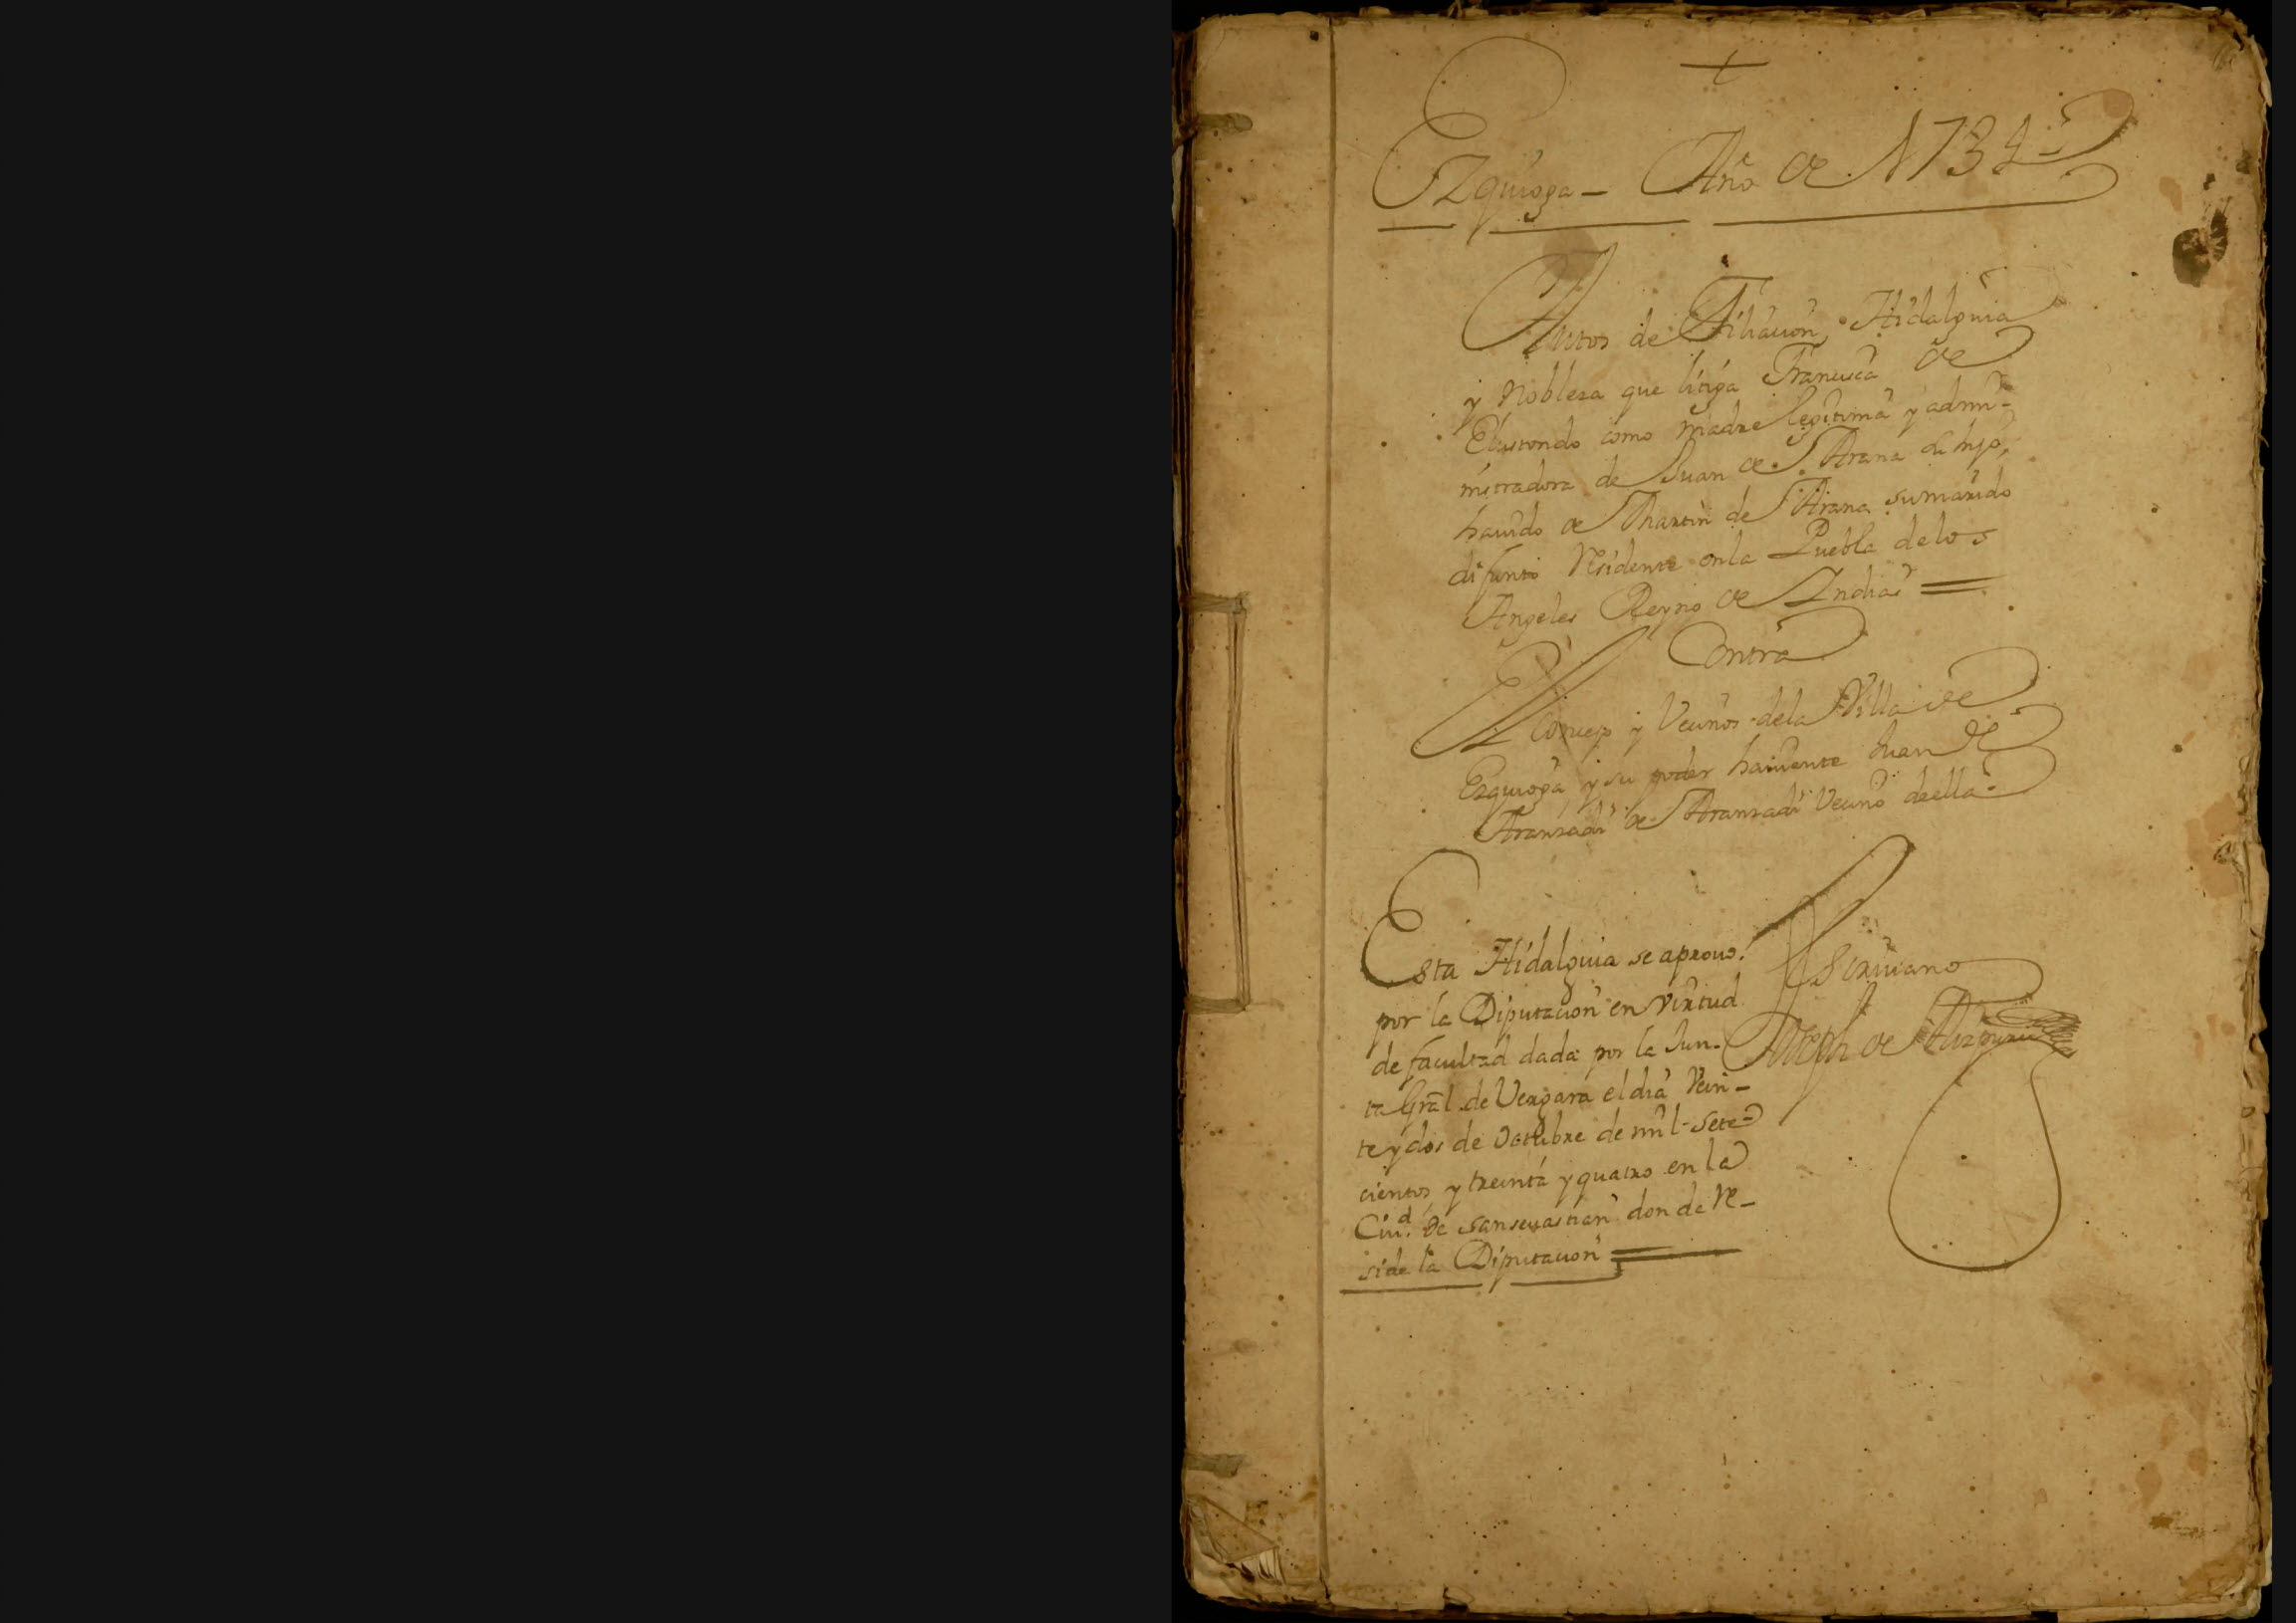 +
Ezquioga - Año de 1734
Autos de Filiacion, Hidalguia
y Nobleza que litiga Francisca de
Elustondo como madre legitima y admi-
nistradora de Juan de Arana su hijo,
hauido de Martin de Arana su marido
difunto Residente en la Puebla de los
Angeles Reyno de Indias =
Contra
El Concejo y Vecinos de la Villa de
Ezquioga, y su poder hauiente Juan de
Aranzadi de Aranzadi Vecino de ella
Esta Hidalguia se aprouo
por la Diputacion en virtud
de facultad dada por la Jun-
ta Gral de Vergara el dia Vein-
te y dos de Octubre de mil Sete-
cientos y treinta y quatro en la
Ciud. de San seuastian donde Re-
side la Diputacion =
Escriuano
Joseph de Aizpuru